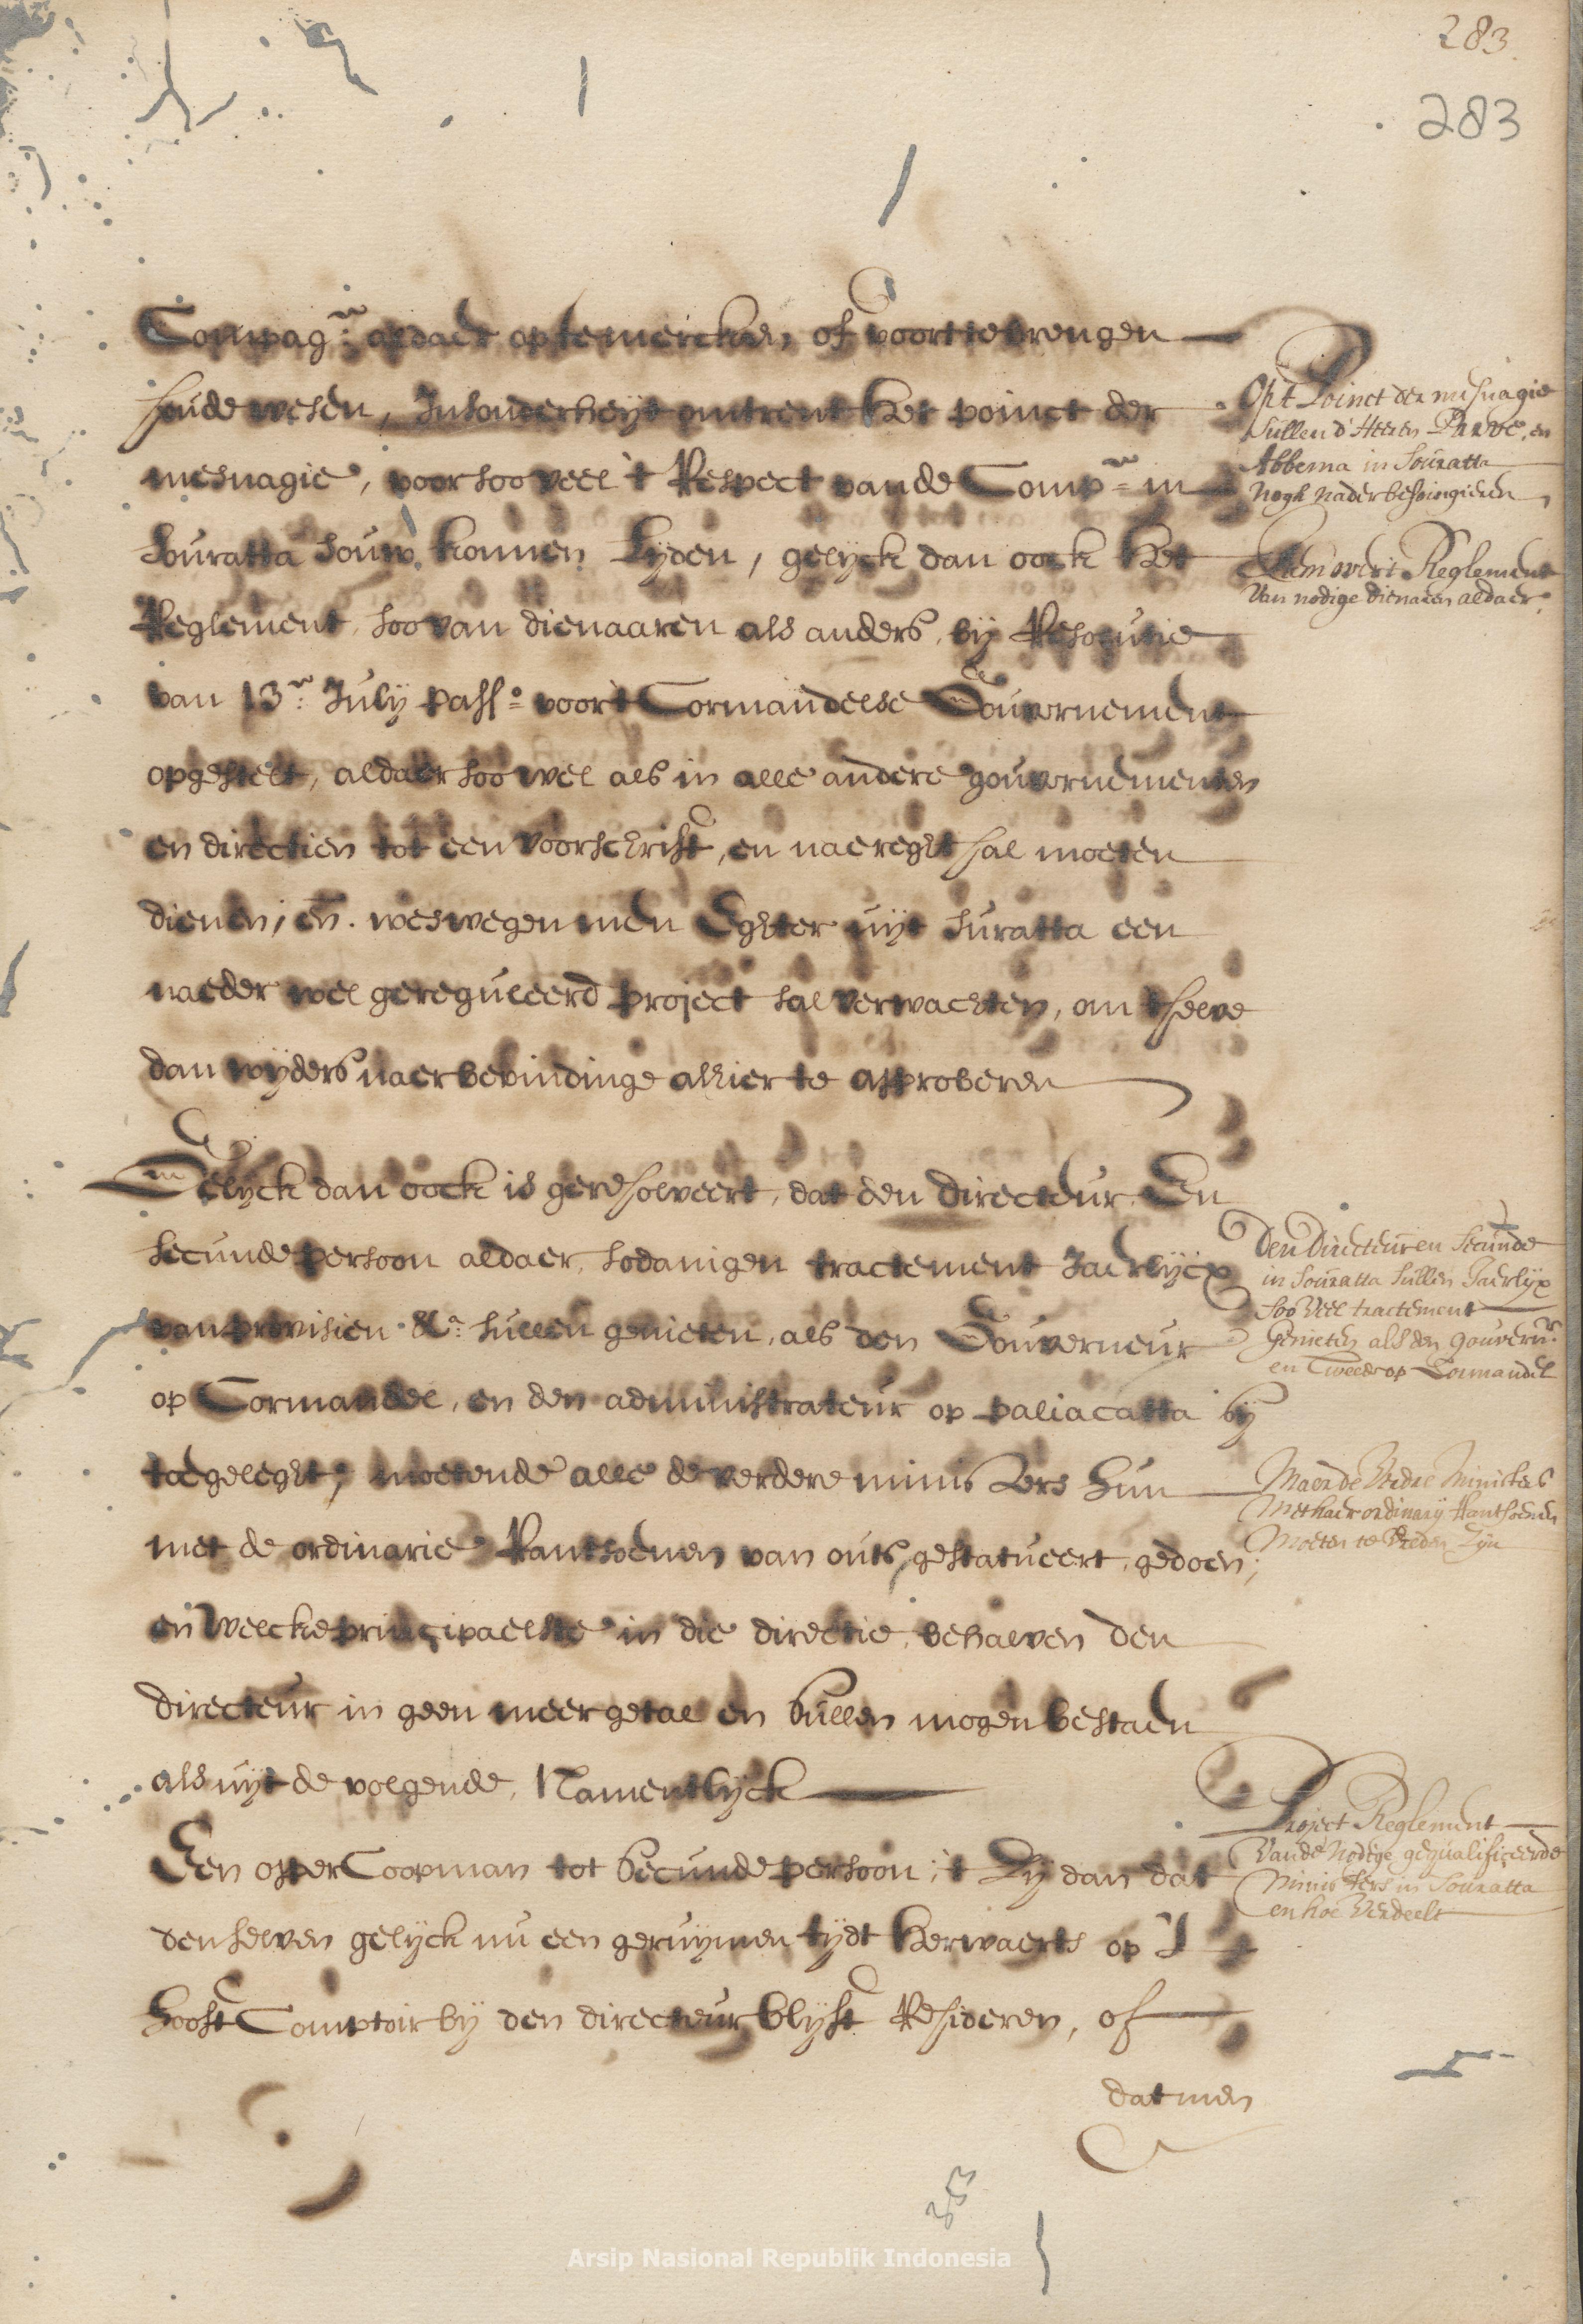 283
283
Compag.ie aldaer op te mercken, of voort te brengen
soude wesen, Insonderheyt omtrent het poinct der
mesnagie, voor soo veel 't Respect vande Comp.ie in
Souratta souw konnen lyden, gelyck dan oock het
Reglement, soo van dienaaren als anders, bij Resolutie
van 13.n July pass.o voor 't Cormandelse Gouvernement
opgestelt, aldaer soo wel als in alle andere gouvernementen
en directien tot een voorschrift, en naeregt sal moeten
dienen, en. weswegen men Egter uijt Suratta een
naeder wel gereguleerd project sal verwachten, om 't selve
dan wijders naer bevindinge alhier te approberen
Gelyck dan oock is geresolveert, dat den directeur En
secunde persoon aldaer, sodanigen tractement Jaerlijcx
van provisien &a: sullen genieten, als den Gouverneur
op Cormandel, en den administrateur op paliacatta bij
toegelegt, moetende alle de verdere ministers hun
met de ordinarie Rantsoenen van outs, gestatueert, gedoen;
en welcke principaelste in die directie, behalven den
directeur in geen meer getal en sullen mogen bestaen
als uijt de volgende, Namentlijck
Een opper Coopman tot secunde persoon; 't Zy dan dat
denselven gelyck nu een geruijmen tijdt herwaerts op 't
hooft Comptoir bij den directeur blijft Resideren, of
dat men
Op't Poinct der mesnagie
sullen d'Heeren Parve, en
Abbema in Souratta
nogh nader besoingieren
Item over 't Reglement
van nodige dienaeren aldaer.
Den Directeur en Secunde
in Souratta sullen Jaerlijx
soo veel tractement
Genieten als den gouvern.r
en Tweede op Cormandel
Maer de verdre Ministers
Met haer ordinarij Rantsoenen
Moeten te vreden Zijn
Project Reglement
Vande Nodige gequalificeerde
Ministers in Souratta
en hoe verdeelt
Arsip Nasional Republik Indonesia